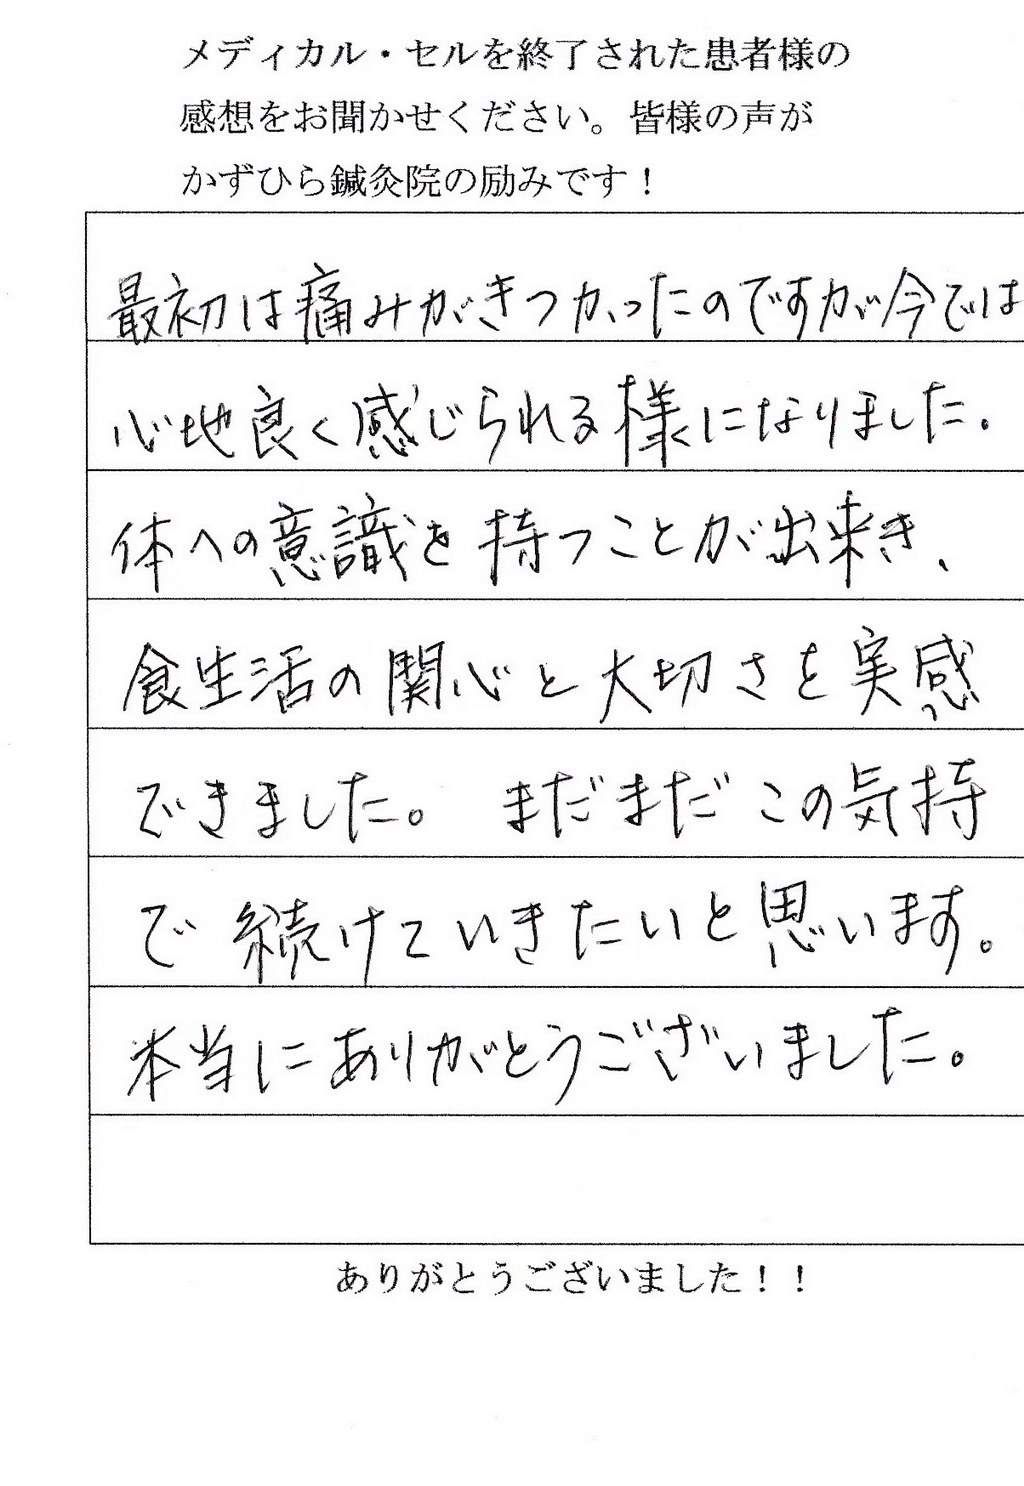 メディカル・セルを終了された患者様の
感想をお聞かせください。皆様の声が
かずひら鍼灸院の励みです！
最初は痛みがきつかったのですが今では
心地良く感じられる様になりました。
体への意識を持つことが出来き、
食生活の関心と大切さを実感
できました。 まだまだこの気持
で続けていきたいと思います。
本当にありがとうございました。
ありがとうございました！！